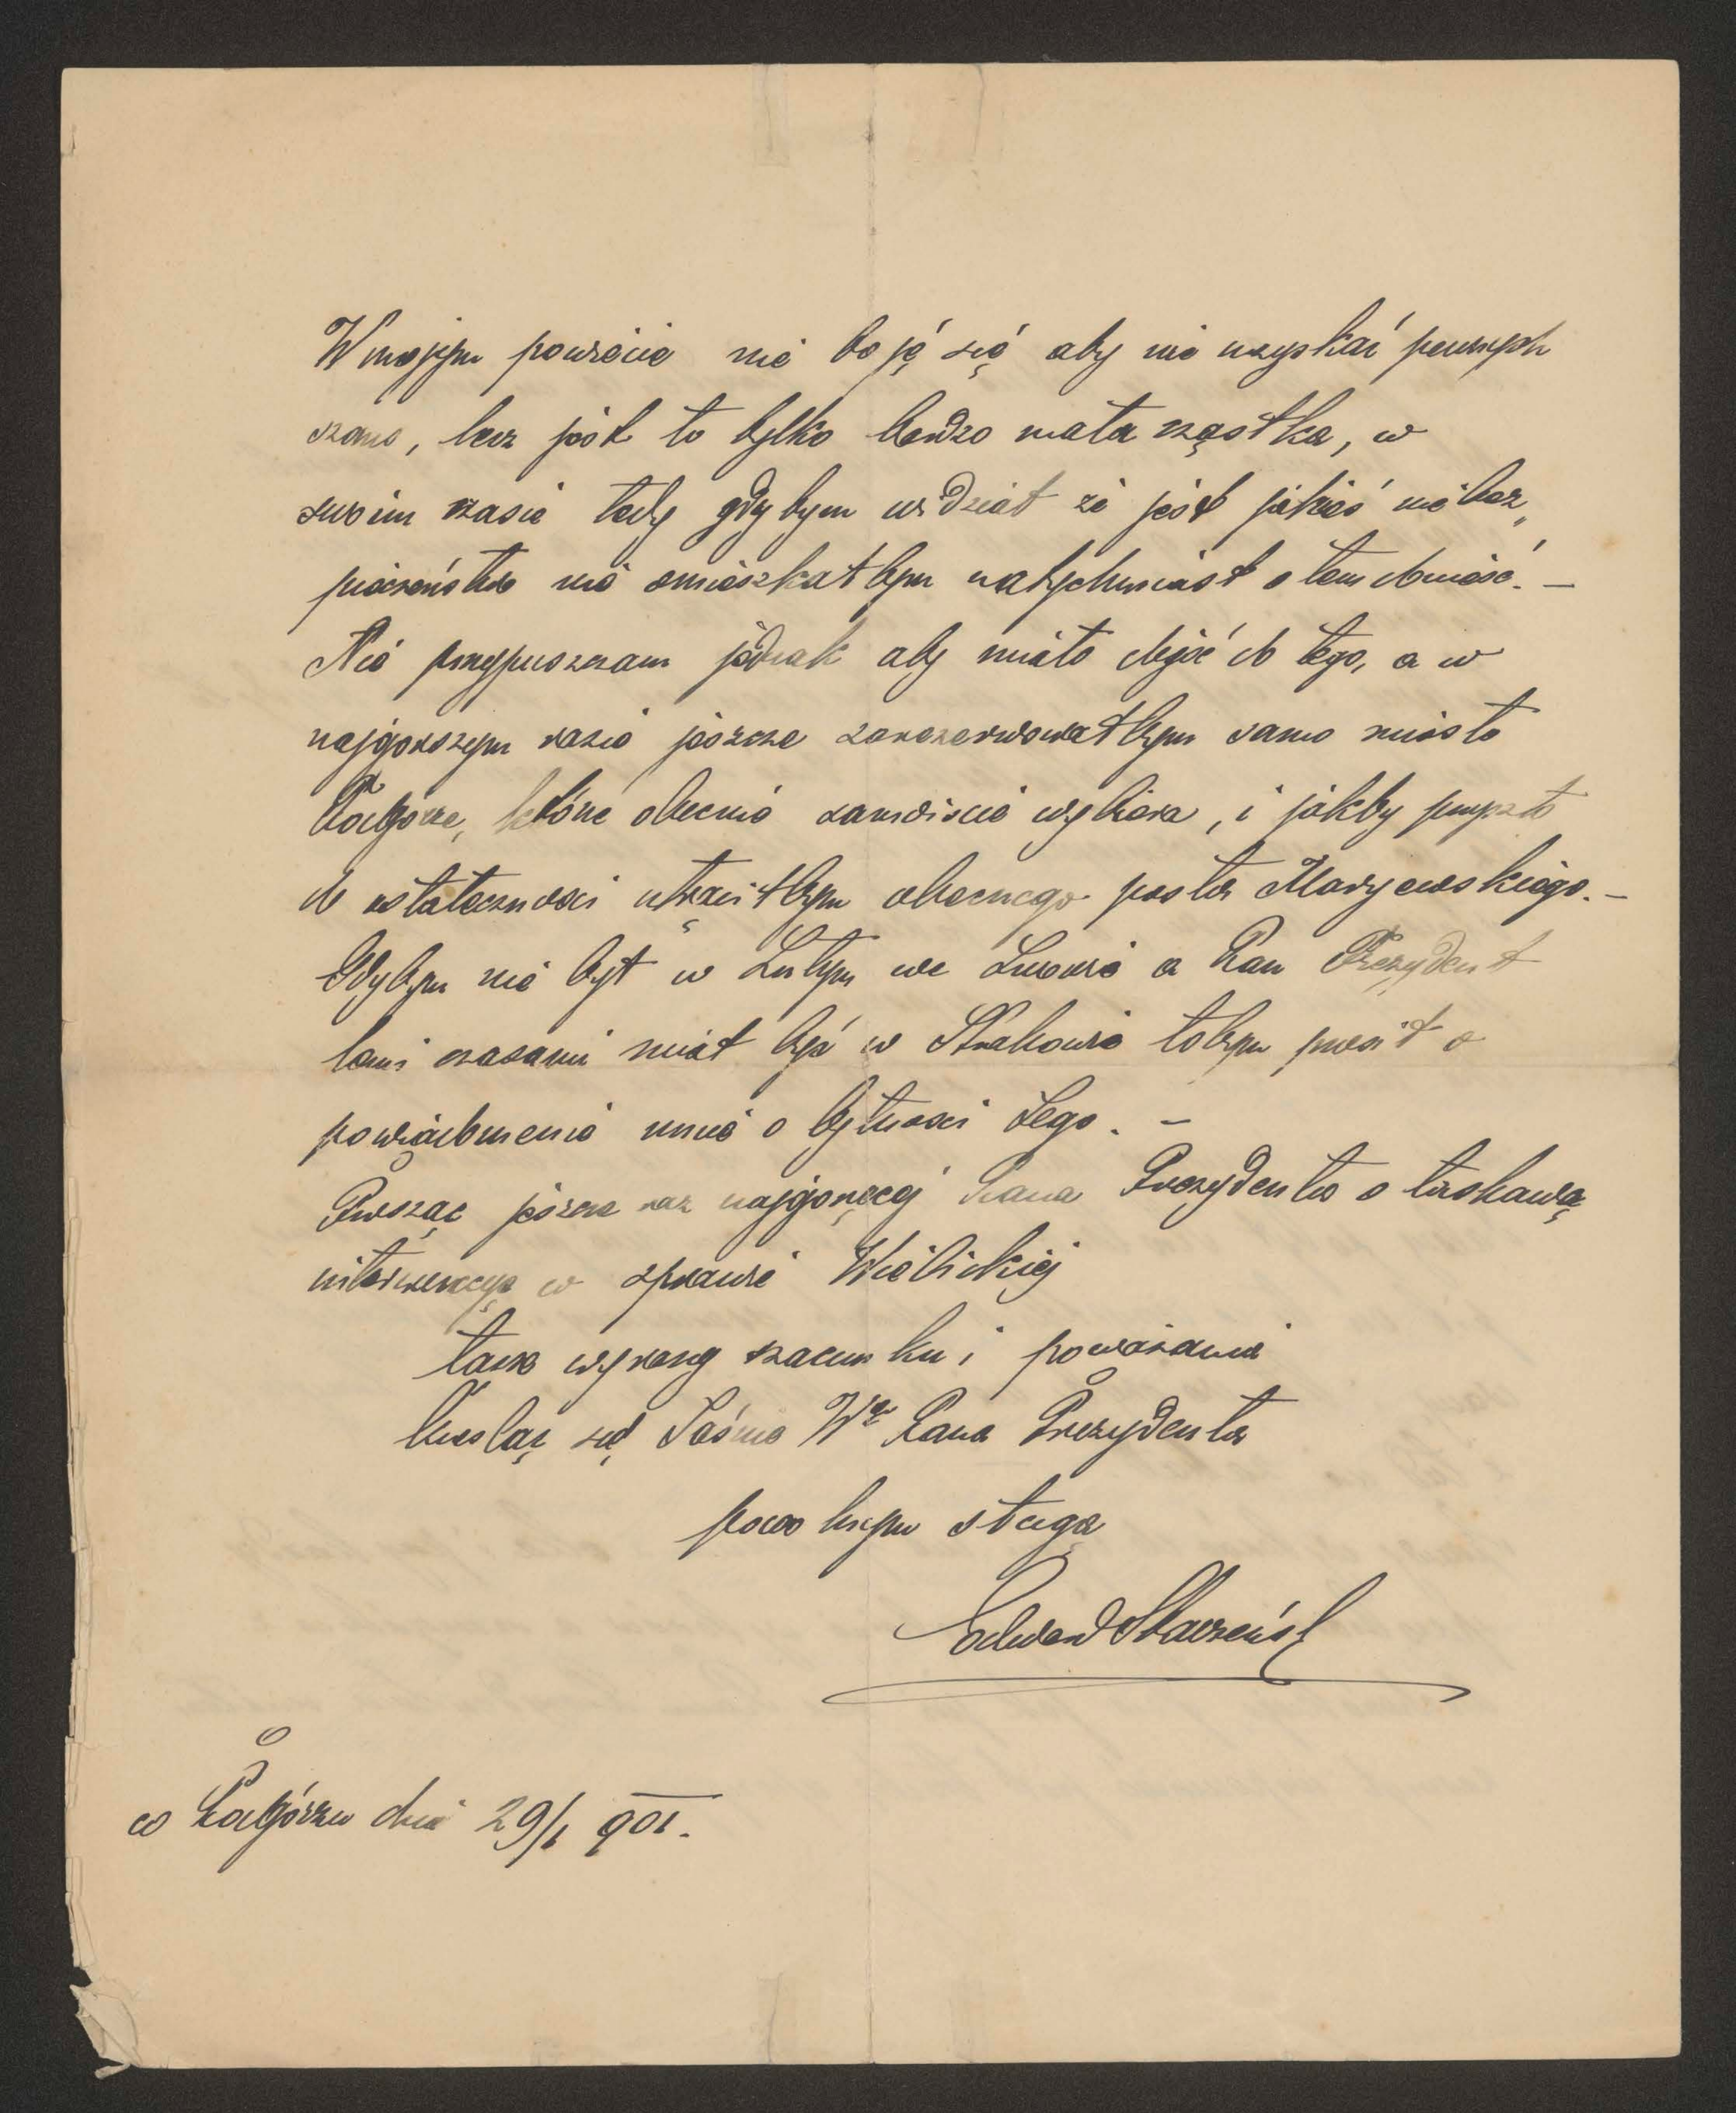 W mojym powiecie nie boję się aby nie uzyskać pewnych
szans, lecz jest to tylko bardzo mała cząstka, w
swoim czasie tedy gdybym widział że jest jakieś niebez„
pieczeństwo nie omieszkałbym natychmiast o tem donieść. —
Nie przypuszczam jednak aby miało dojść do tego, a w
najgorszym razie jeszcze zarezerwowałbym samo miasto
Podgórze, które obecnie zawiście wybiera, i jakby przyszło
do ostateczności utrąciłbym obecnego posła Maryewskiego. —
Gdybym nie był w Lutym we Lwowie a Pan Prezydent
temi czasami miał być w Krakowie tobym prosił o
powiadomienie mnie o bytności Jego. —
Prosząc jeszcze raz najgoręcej Pana Prezydenta o łaskawą
interwencyę w sprawie Wielickiej
łączę wyrazy szacunku i poważania
kreśląc się Jaśnie W<sup>go</sup> Pana Prezydenta
powolnym sługą
Edward Starzeńsk
w Podgórzu dnia 29/1 901.